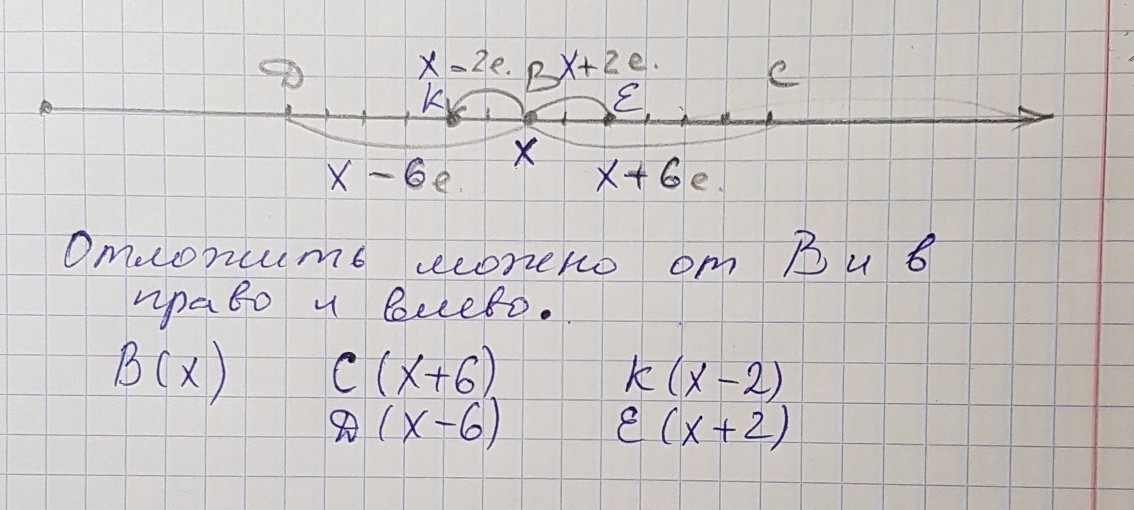 Д х-2е. В х+2е. С
К Е
х
х-6е. х+6е.
Отложить можно от В и в
право и влево.
В(х) С(х+6) К(х-2)
Д(х-6) Е(х+2)